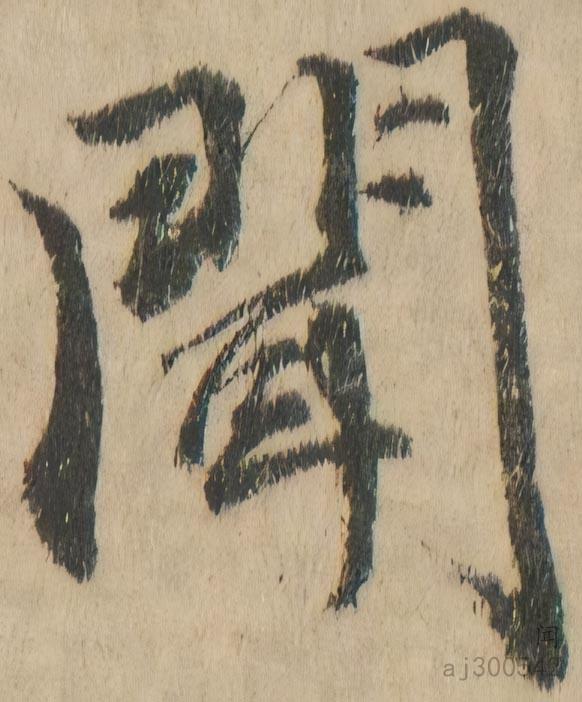 聞
闻
aj300542